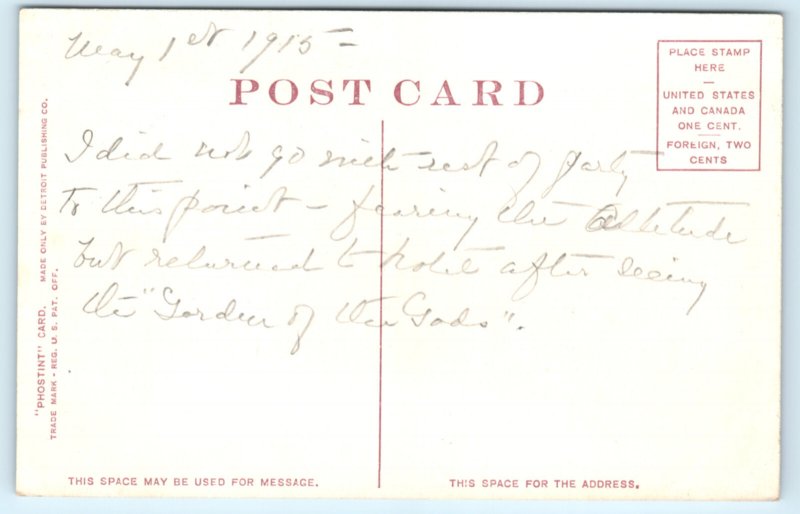 May 1st 1915 -
POST CARD
PLACE STAMP
HERE
UNITED STATES
AND CANADA
ONE CENT.
FOREIGN, TWO
CENTS
I did not go with rest of party
to this point - fearing the altitude
but returned to hotel after seeing
the "Garden of the Gods".
"PHOSTINT" CARD. MADE ONLY BY DETROIT PUBLISHING CO.
TRADE MARK - REG. U. S. PAT. OFF.
THIS SPACE MAY BE USED FOR MESSAGE.
THIS SPACE FOR THE ADDRESS.